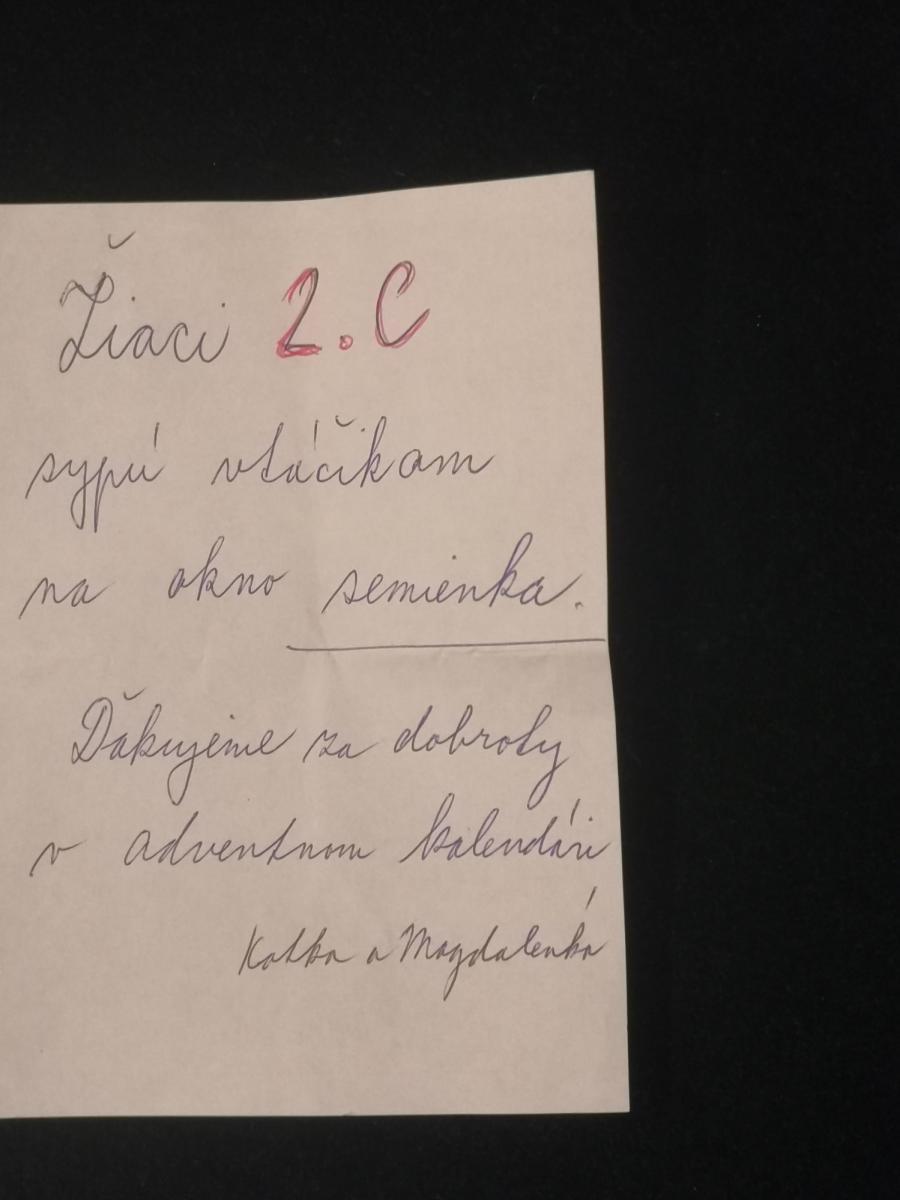 Žiaci 2.C
sypú vtáčikam
na okno semienka.
Ďakujeme za dobroty
v adventnom kalendári
Katka a Magdalénka